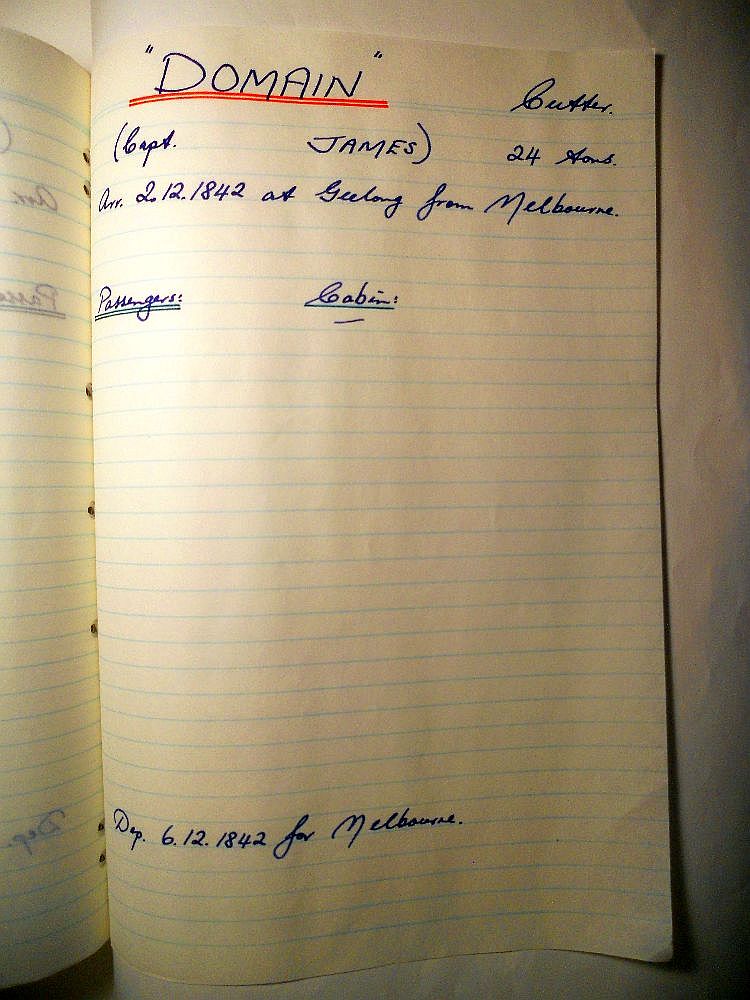 "DOMAIN" Cutter.
(Capt. JAMES) 24 tons.
Arr. 2.12.1842 at Geelong from Melbourne.
Passengers: Cabin:
—
Dep. 6.12.1842 for Melbourne.